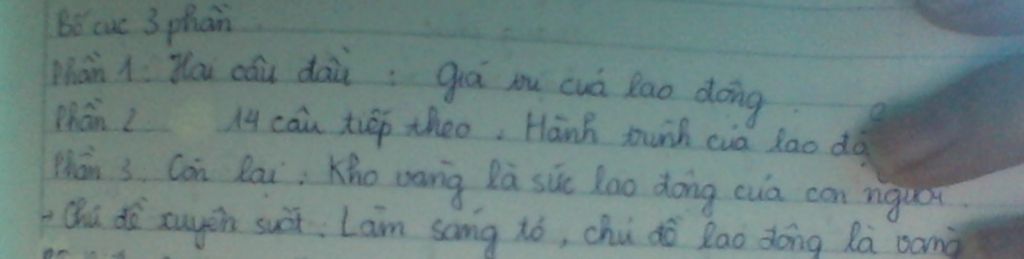 Bố cục 3 phần
Phần 1: Hai câu đầu : giá trị của lao động
Phần 2 14 câu tiếp theo. Hành trình của lao độ
Phần 3. Còn lại: Kho vàng là sức lao động của con người.
Chủ đề xuyên suốt: Làm sáng tỏ, chủ đề lao động là vàng